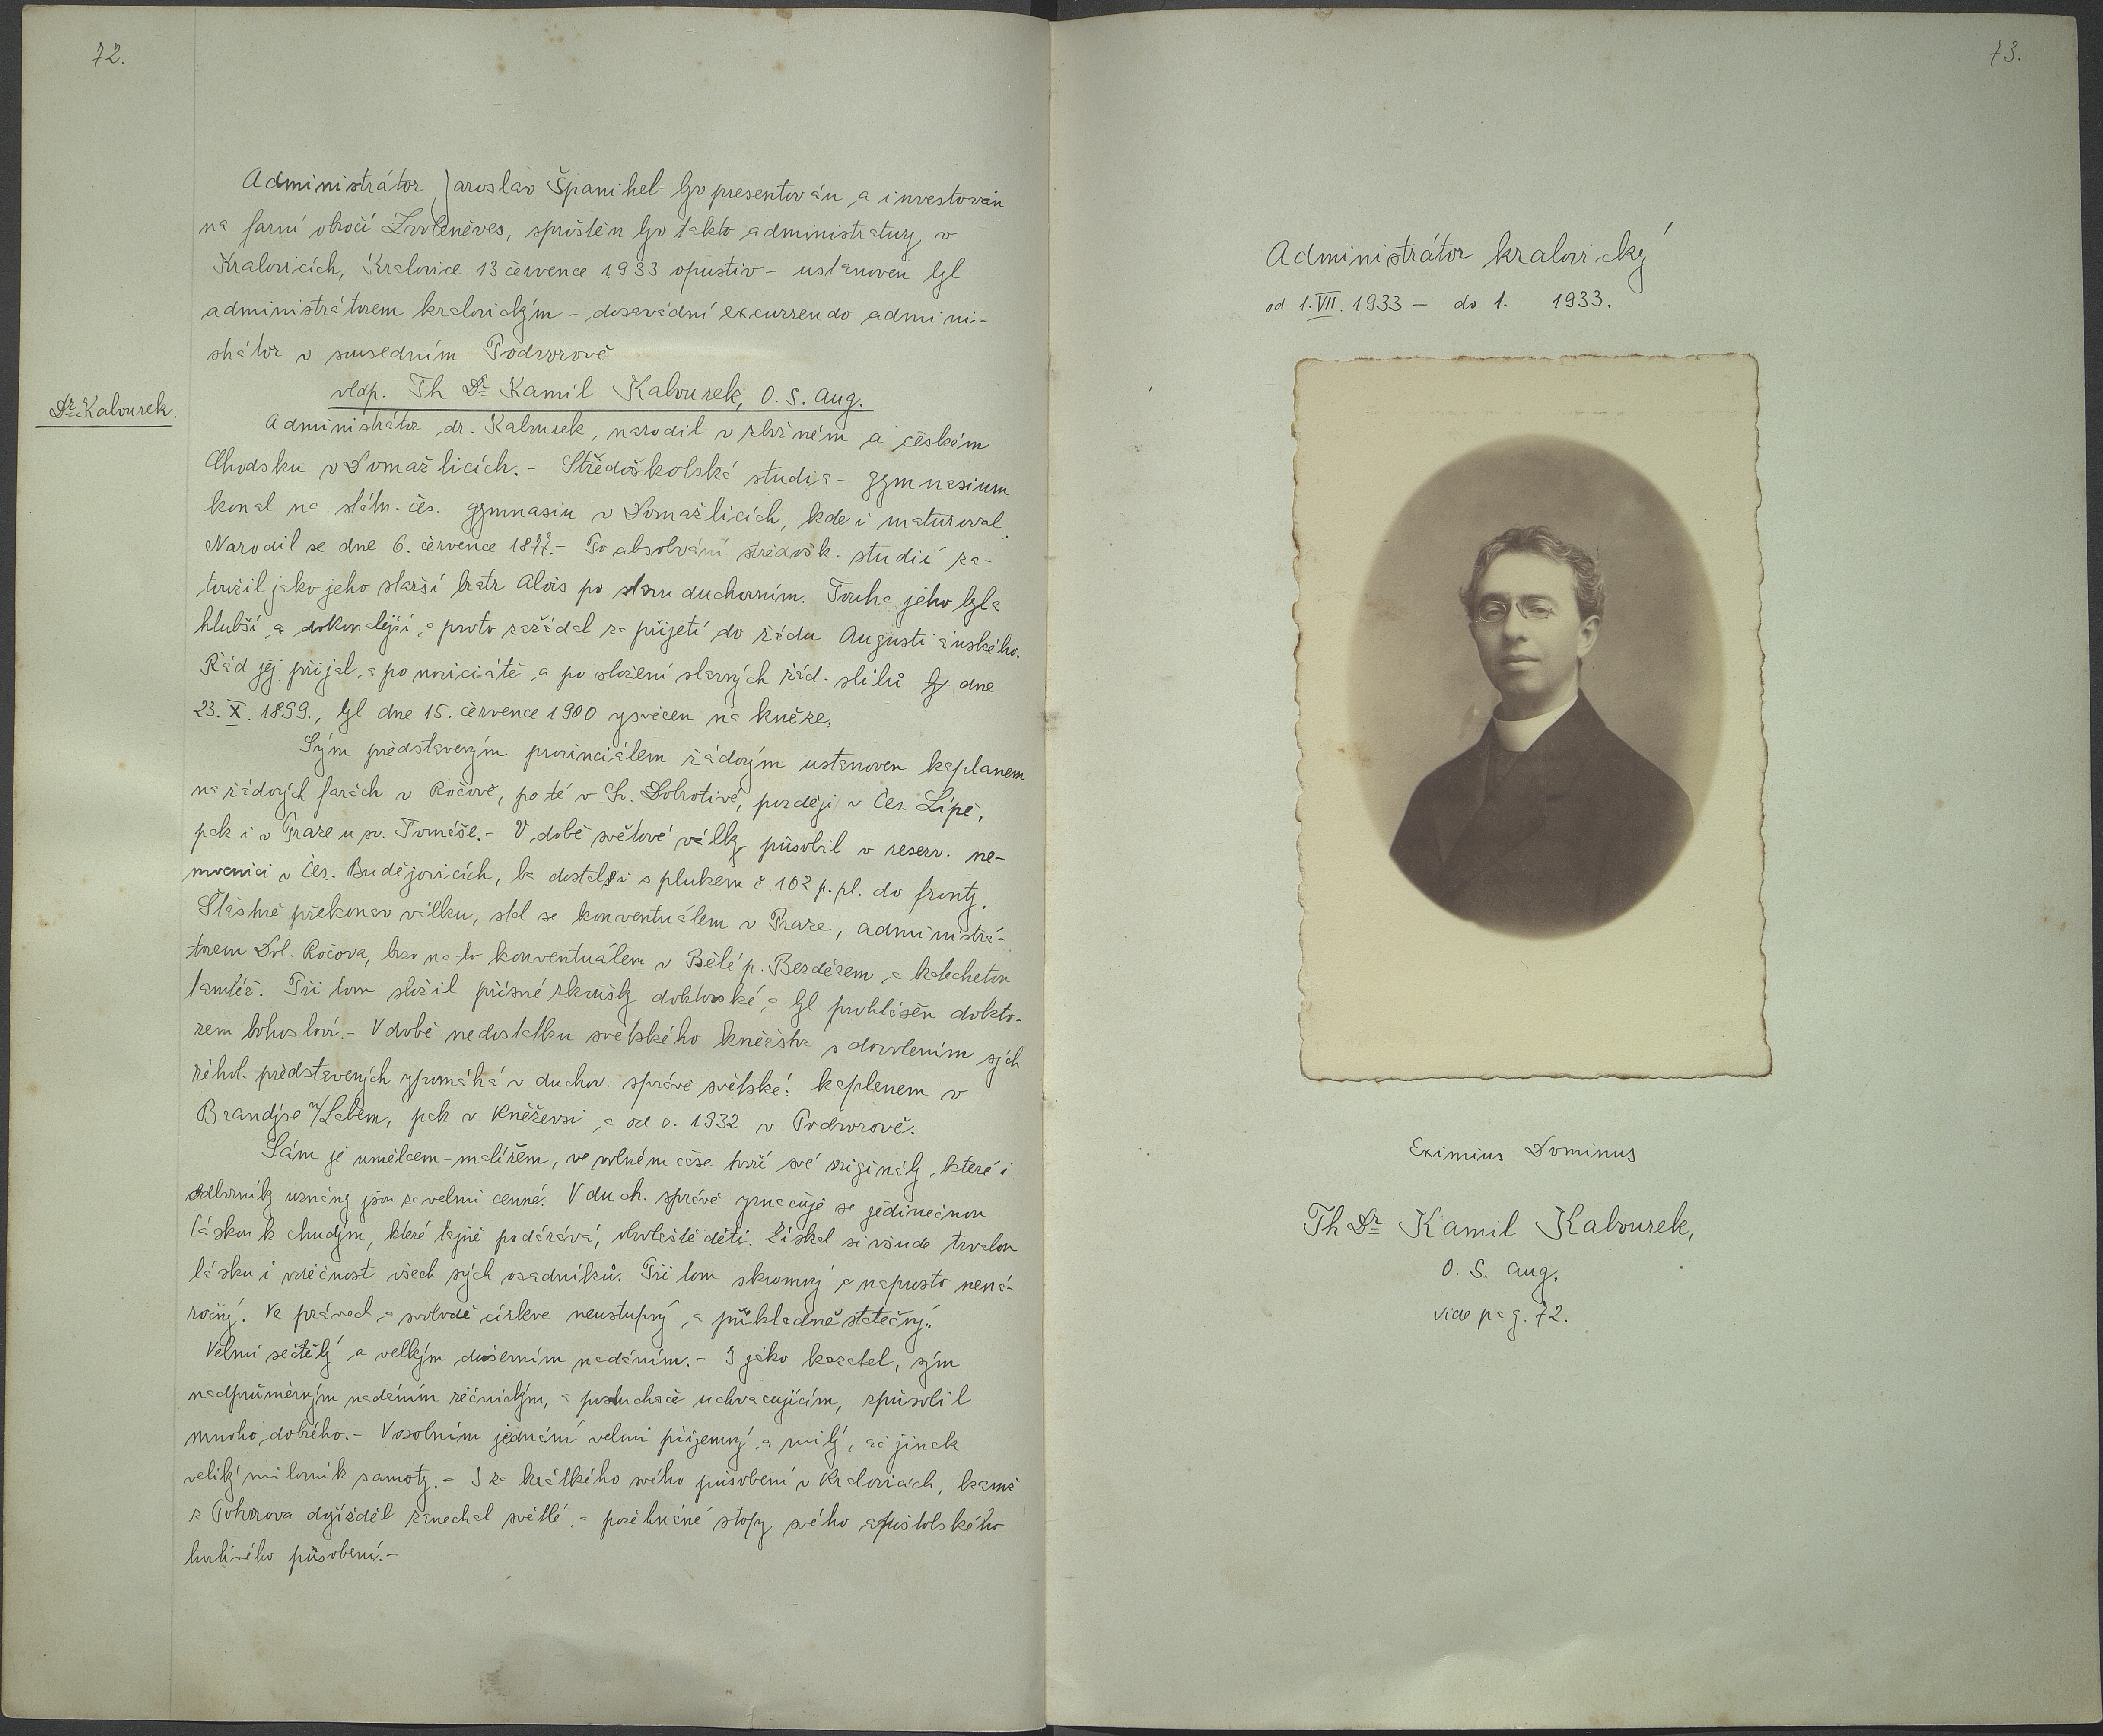 72.
Administrátor Jaroslav Španihel byv presentován a investován
na farní obročí Zvoleněves, sproštěn byv takto administratury v
Kralovicích, Kralovice 13 července 1933 opustiv - ustanoven byl
administrátorem kralovickým - dosavádní excurrendo admini-
strátor v sousedním Podvorově
vldp. Th Dr Kamil Kalourek, O. S. Aug.
Dr Kalourek.
Administrátor dr. Kalourek, narodil v zbožném a českém
Chodsku v Domažlicích. - Středoškolská studia - gymnasium
konal na státn. čes. gymnasiu v Domažlicích, kde i maturoval.
Narodil se dne 6. července 1877. - Po absolvání středošk. studií za-
toužil jako jeho starší bratr Alois po stavu duchovním. Touha jeho byla
hlubší a dokonalejší, a proto zažádal za přijetí do řádu Augustiánského.
Řád jej přijal, a po noviciátě, a po složení slavných řád. slibů dne
23. X. 1899., byl dne 15. července 1900 vysvěcen na kněze.
Svým představeným provinciálem řádovým ustanoven kaplanem
na řádových farách v Ročově, po té v Sv. Dobrotivé, později v Čes. Lípě,
pak i v Praze u sv. Tomáše. - V době světové války působil v reserv. ne-
mocnici v Čes. Budějovicích, ba dostal i s plukem č. 102 p. pl. do fronty.
Šťastně překonav válku, stal se konventuálem v Praze, administrá-
torem Dol. Ročova, brzo na to konventuálem v Bělé p. Bezdězem a katechetou
tamtéž. Při tom složil přísné zkoušky doktorské, a byl prohlášen dokto-
rem bohosloví. - V době nedostatku světského kněžstva s dovolením svých
řehol. představených vypomáhá v duchov. správě světské: kaplanem v
Brandýse n/Labem, pak v Kněževsi a od r. 1932 v Podvorově.
Sám je umělcem - malířem, ve volném čase tvoří své originály, které i
odborníky uznány jsou za velmi cenné. V duch. správě vyznačuje se jedinečnou
láskou k chudým, které tajně podárává, obzvláště děti. Získal si všude trvalou
lásku i vděčnost všech svých osadníků. Při tom skromný a naprosto nená-
ročný. Ve právech a svobodě církve neústupný a příkladně statečný.
Velmi sečtělý a velkým duševním nadáním. - I jako kazatel, svým
nadprůměrným nadáním řečnickým, a posluchače uchvacujícím, způsobil
mnoho dobrého. - V osobním jednání velmi příjemný a milý, ač jinak
veliký milovník samoty. - I za krátkého svého působení v Kralovicích, kamž
z Podvorova dojížděl zanechal světlé a požehnané stopy svého apoštolského
horlivého působení. -
73.
Administrátor kralovický
od 1. VII. 1933 - do 1. 1933.
Eximius Dominus
Th Dr Kamil Kalourek,
O. S. Aug.
vide pag. 72.